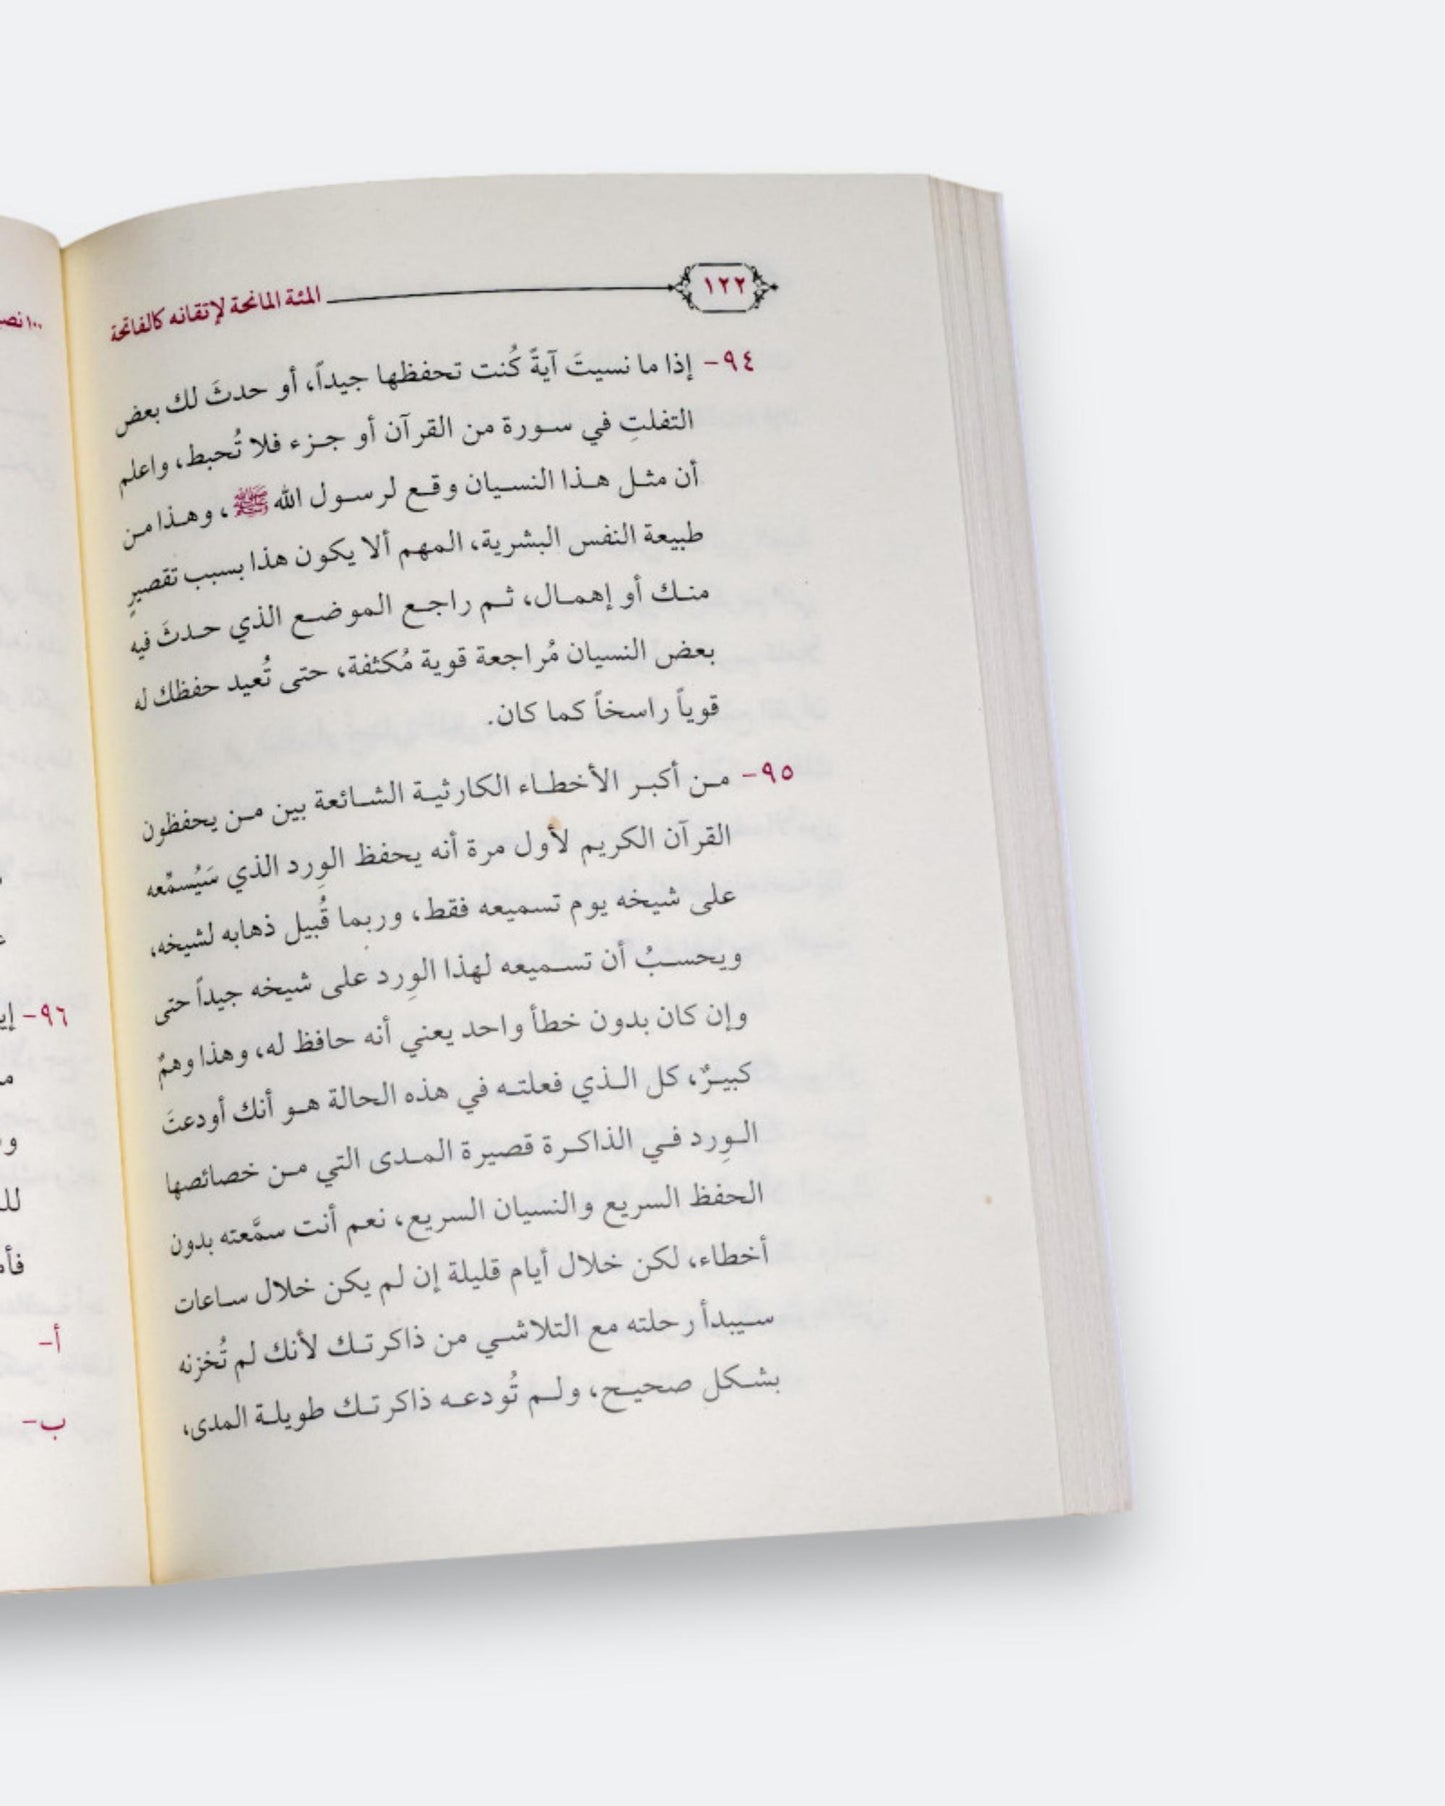 ١٢٢ المئة المانحة لإتقانه كالفاتحة
٩٤- إذا ما نسيتَ آيةً كُنت تحفظها جيداً، أو حدثَ لك بعض
التفلتِ في سورة من القرآن أو جزء فلا تُحبط، واعلم
أن مثل هذا النسيان وقع لرسول الله ﷺ، وهذا من
طبيعة النفس البشرية، المهم ألا يكون هذا بسبب تقصيرٍ
منك أو إهمال، ثم راجع الموضع الذي حدثَ فيه
بعض النسيان مُراجعة قوية مُكثفة، حتى تُعيد حفظك له
قوياً راسخاً كما كان.
٩٥- من أكبر الأخطاء الكارثية الشائعة بين من يحفظون
القرآن الكريم لأول مرة أنه يحفظ الوِرد الذي سَيُسمِّعه
على شيخه يوم تسميعه فقط، وربما قُبيل ذهابه لشيخه،
ويحسبُ أن تسميعه لهذا الوِرد على شيخه جيداً حتى
وإن كان بدون خطأ واحد يعني أنه حافظ له، وهذا وهمٌ
كبيرٌ، كل الذي فعلته في هذه الحالة هو أنك أودعتَ
الوِرد في الذاكرة قصيرة المدى التي من خصائصها
الحفظ السريع والنسيان السريع، نعم أنت سمَّعته بدون
أخطاء، لكن خلال أيام قليلة إن لم يكن خلال ساعات
سيبدأ رحلته مع التلاشي من ذاكرتك لأنك لم تُخزنه
بشكل صحيح، ولم تُودعه ذاكرتك طويلة المدى،
١٠٠
٩٦-
أ-
ب-